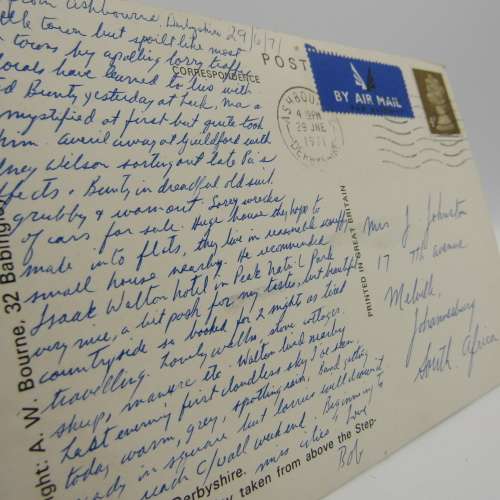 Ashbourne, Derbyshire 29/6/71
little town but spoilt like most
towns by apalling lorry traffic
locals have learned to live with
Bunty yesterday at Leek, Ma a
mystified at first but quite took
him. Averil away at Guildford with
Wilson sorting out late Pa's
effects. Bunty in dreadful old suit
grubby & wornout. Sorey wrecks
of cars for sale. Huge house they hope to
made into flats, they live in reasonable
small house nearby. He recommended
Isaak Walton hotel in Peak Nat'l Park
very nice, a bit posh for my taste, but beautiful
countryside so booked for 2 nights as tired
travelling. Lovely walks, stone cottages,
sheep, manure etc. Walton lived nearby
Last evening first cloudless sky I've seen
today, warm, grey, spotting rain. Band getting
ready in square but lorries will drown it
reach C/wall weekend. Beginning to
miss cities! Love
Bob
CORRESPONDENCE
POST
BY AIR MAIL
4
ASHBOURNE
4 PM
29 JNE
1971
DERBYSHIRE
Mrs J Johnston
17 7th avenue
Melvill,
Johannesburg
South Africa
PRINTED IN GREAT BRITAIN
ght: A. W. Bourne, 32 Babing
Derbyshire.
taken from above the Step-